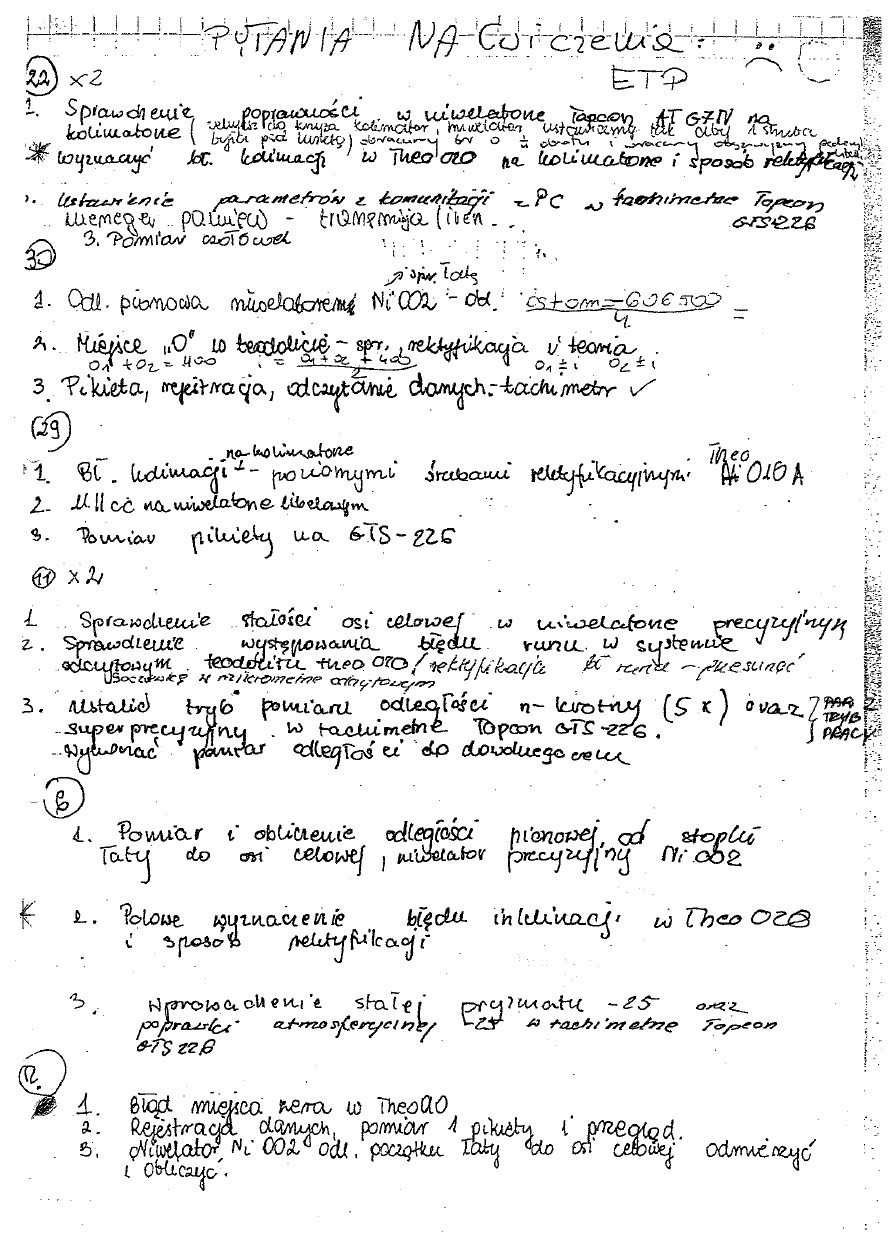 PYTANIA NA ćwiczenia:
ETP
22 x2
1. Sprawdzenie poprawności w niwelatorze Topcon AT G7N na
kolimatorze ( celujesz do krzyża kolimator, niwelator ustawiamy tak aby 1 śruba
była pod lunetą, obracamy o i obrotu i wracamy obserwujemy
* wyznaczyć bł. kolimacji w Theo 020 na kolimatorze i sposób rektyfikacji
2. Ustawienie parametrów z komunikacji z PC w tachimetrze Topcon
menager pamięci - transmisja GTS226
3. Pomiar czołówek
30
spr. łatę
1. Odl. pionowa niwelatorem Ni 002 - od. 606500 =
4
2. Miejsce „0" w teodolicie - spr., rektyfikacja i teoria
O1 + O2 = 400 i = O1 + O2 + 400 O1 ± i O2 ± i
2
3. Pikieta, rejestracja, odczytanie danych - tachimetr ✓
29
na kolimatorze
1. Bł. kolimacji - poziomymi śrubami rektyfikacyjnymi Theo 010 A
2. ll cc na niwelatorze libelowym
3. Pomiar pikiety na GTS-226
11 x2
1 Sprawdzenie stałości osi celowej w niwelatorze precyzyjnym
2. Sprawdzenie występowania błędu runu w systemie
odczytowym teodolitu theo 010 / rektyfikacja bł runu - przesunąć
soczewkę w mikrometrze odczytowym
3. Ustalić tryb pomiaru odległości n-krotny (5x) oraz PAR
superprecyzyjny w tachimetrze Topcon GTS-226. TRYB
Wykonać pomiar odległości do dowolnego celu PRACY
6
1. Pomiar i obliczenie odległości pionowej od stopki
łaty do osi celowej, niwelator precyzyjny Ni 002
2. Polowe wyznaczenie błędu inklinacji w Theo 020
i sposób rektyfikacji
3. Wprowadzenie stałej pryzmatu -25 oraz
poprawki atmosferycznej -25 w tachimetrze Topcon
GTS 226
12.
1. Błąd miejsca zera w Theo
2. Rejestracja danych, pomiar 1 pikiety i przegląd.
3. Niwelator Ni 002 odl. początku łaty do osi celowej odmierzyć
i obliczyć.